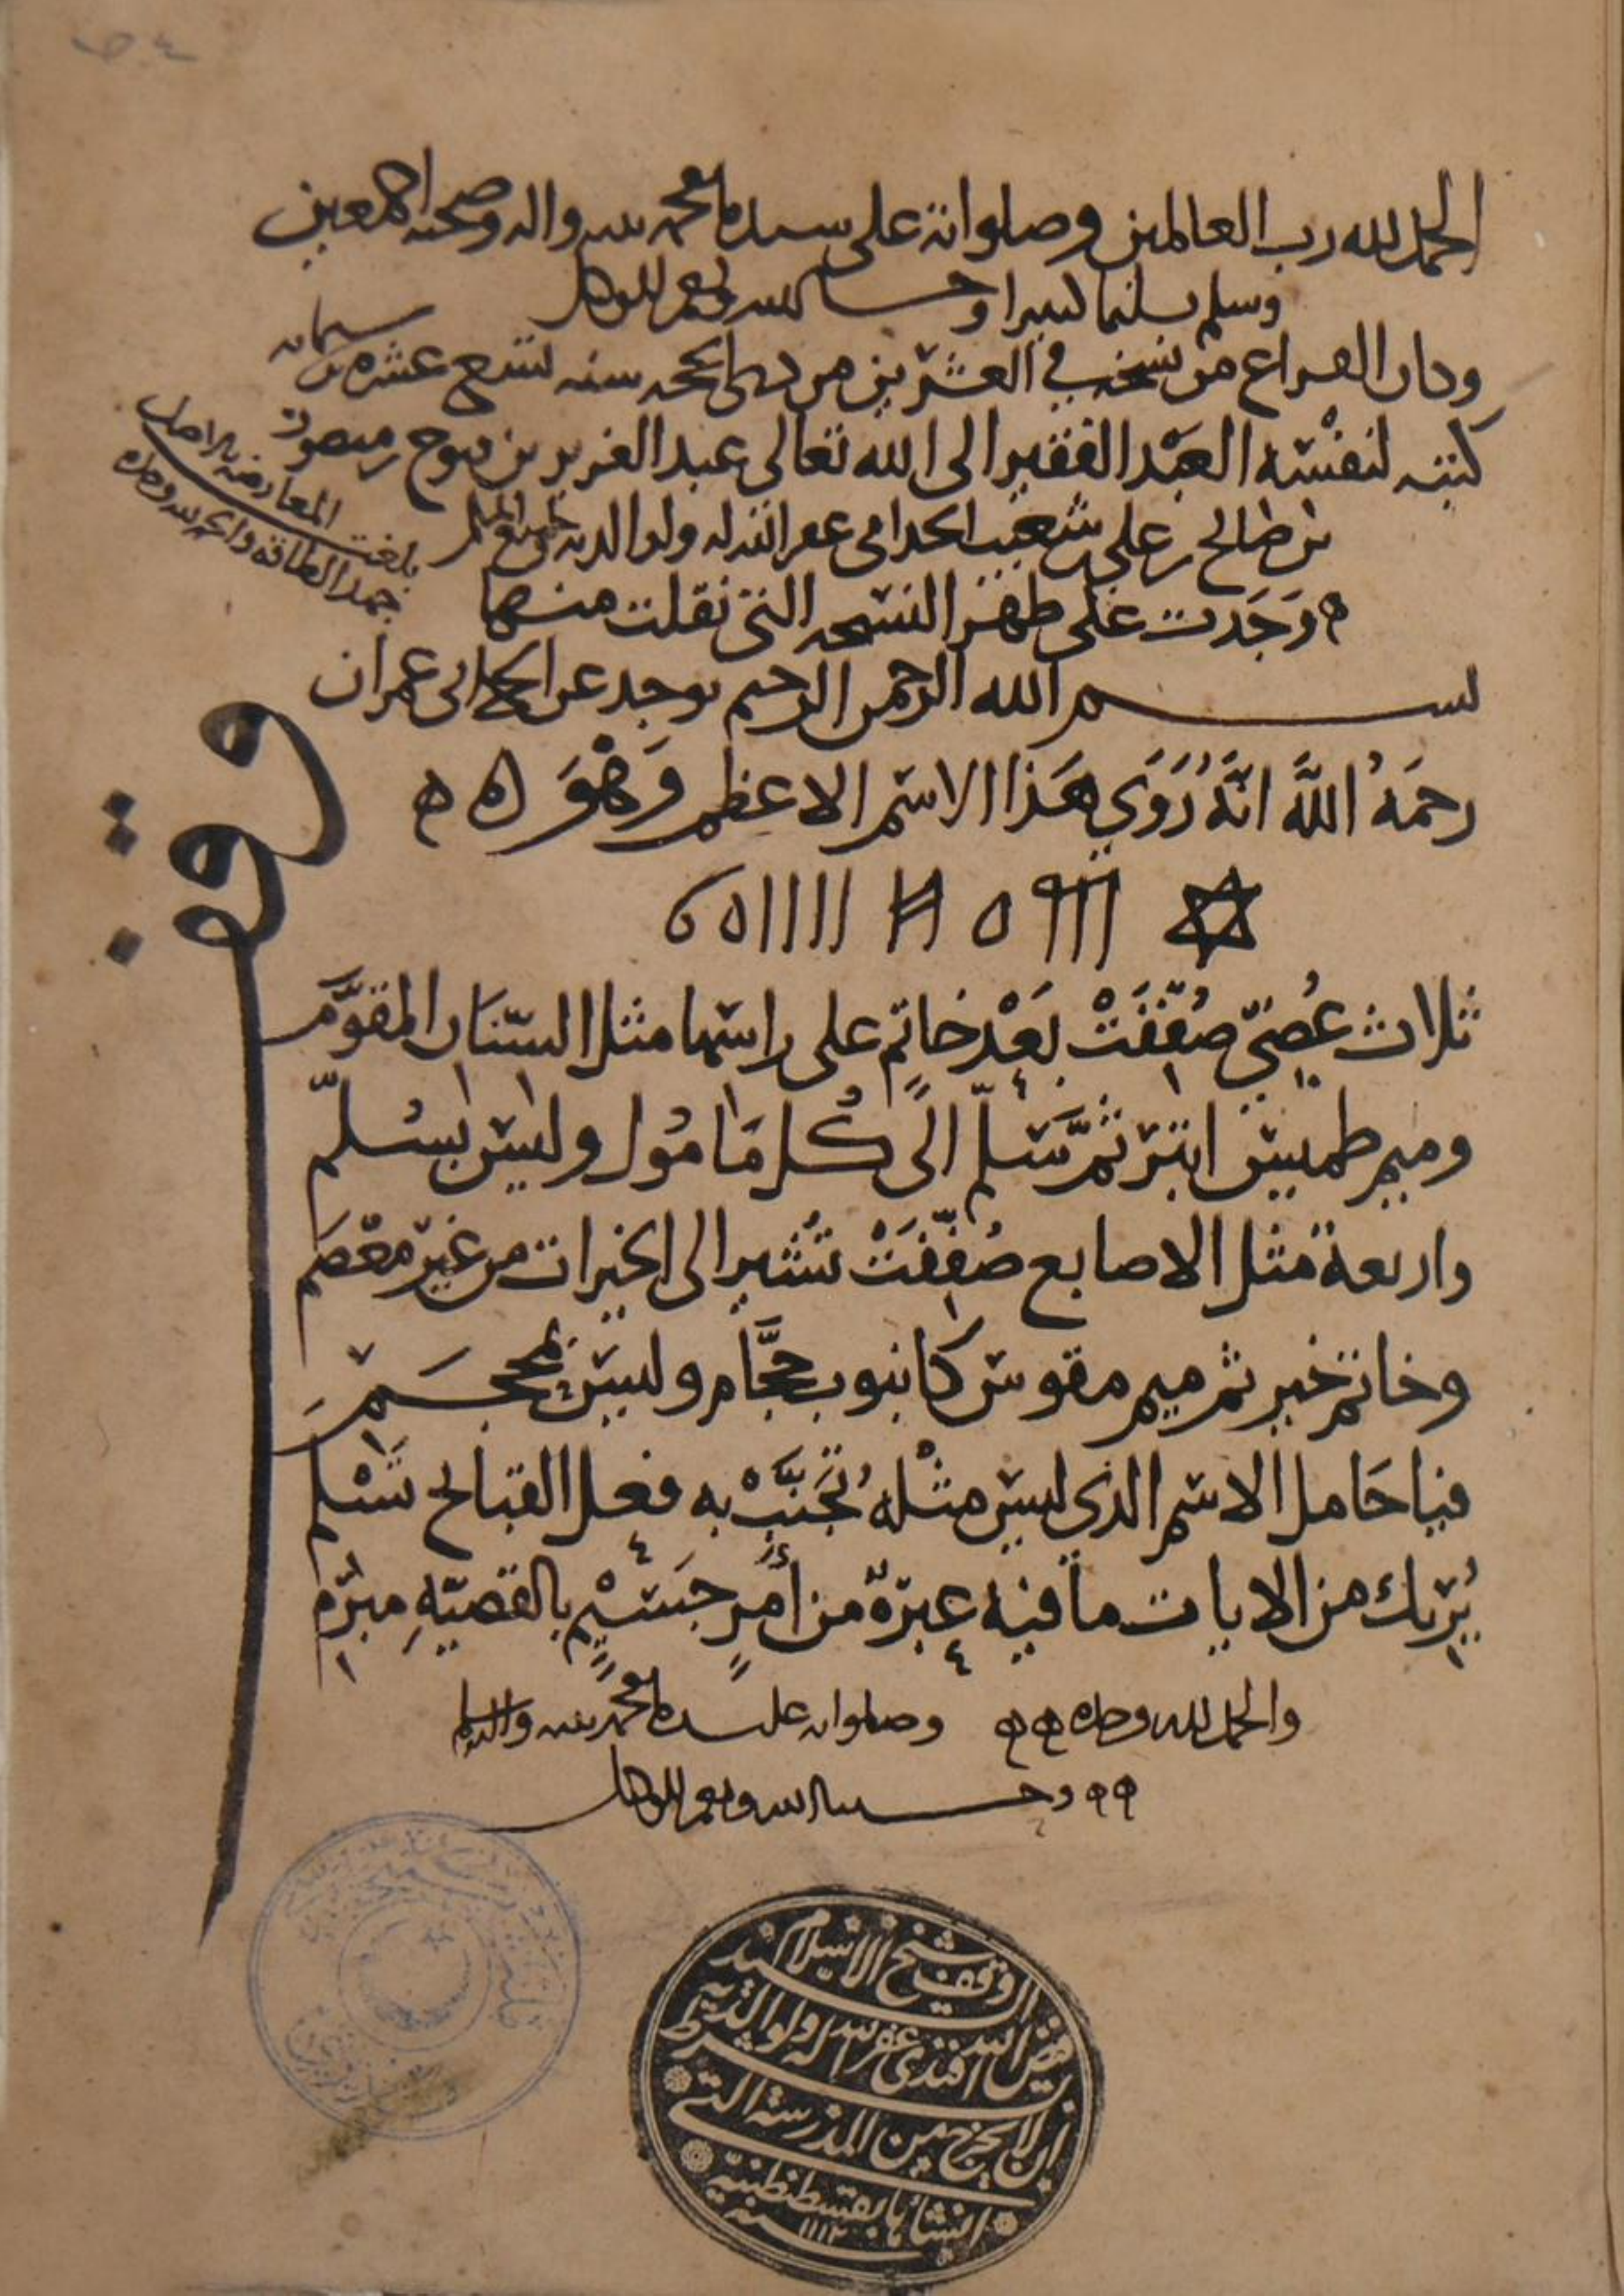 الحمد لله رب العالمين وصلواته على سيدنا محمد نبيه واله وصحبه اجمعين
وسلم تسليما كثيرا وحسبنا الله ونعم الوكيل
وكان الفراغ من نسخه في العشرين من ذي الحجه سنه تسع عشره وستمايه
كتبه لنفسه العبد الفقير الى الله تعالى عبد العزيز بن
بن علي بن شعيب غفر الله له ولوالديه ولجميع المسلمين
بلغت المعارضه بالاصل
جهد الطاقه والحمد لله وحده
وجدت على ظهر النسخه التي نقلت منها
بسم الله الرحمن الرحيم يوجد عن ابي عمران
رحمه الله انه روي هذا الاسم الاعظم وهو
ثلاث عصي صففت بعد خاتم على راسها مثل السنان المقوم
وميم طميس ابتر ثم سلم الى كل مامول وليس بسلم
واربعة مثل الاصابع صففت تشير الى الخيرات من غير معصم
وخاتم خير ثم ميم مقوس كانبوب حجام وليس بمحجم
فيا حامل الاسم الذي ليس مثله تجنب به فعل القبائح تسلم
يريك من الايات ما فيه عبرة من أمر جسيم بالقضية مبرم
والحمد لله وحده وصلواته على سيدنا محمد نبيه واله وسلم
وحسبنا الله ونعم الوكيل
وقف
وقف شيخ الاسلام السيد
فيض الله افندي غفر الله له ولوالديه بشرط
ان لا يخرج من المدرسة التي
انشأها بقسطنطينية
سنه ١١١٢